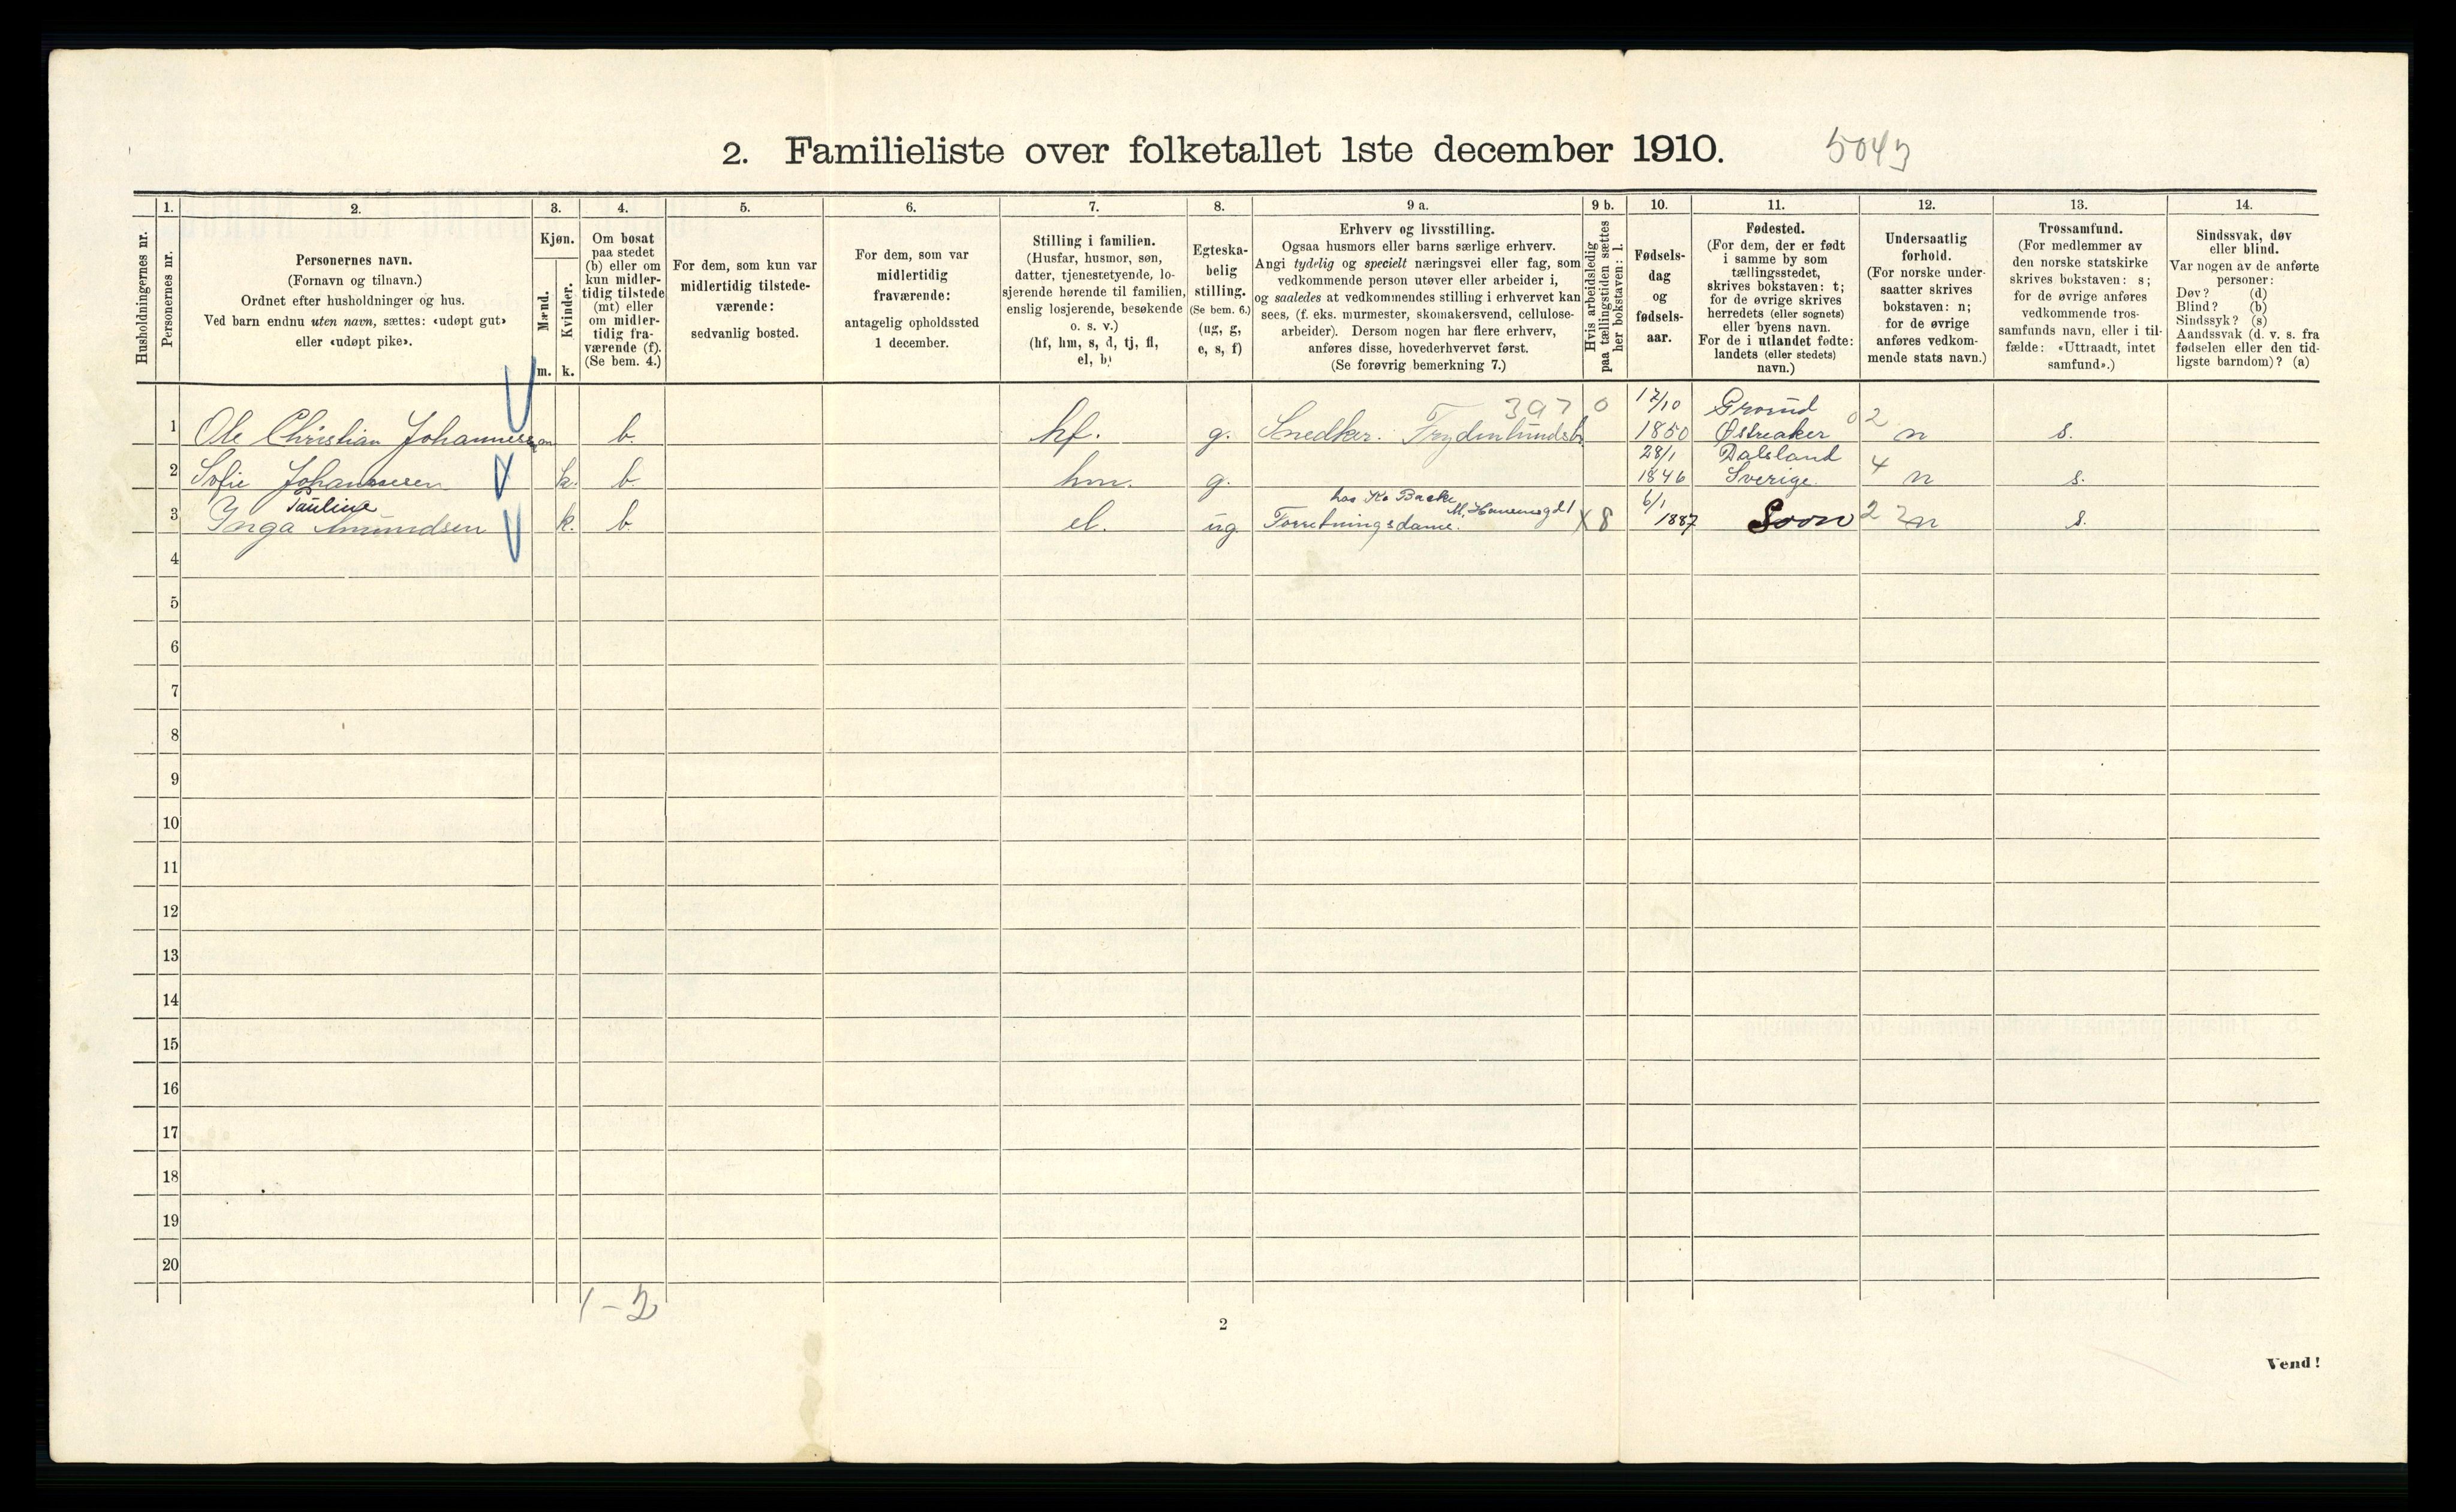 2. Familieliste over folketallet 1ste december 1910. 5043
Husholdningernes nr.
1.
Personernes nr.
2.
Personernes navn.
(Fornavn og tilnavn.)
Ordnet efter husholdninger og hus.
Ved barn endnu uten navn, sættes: «udøpt gut»
eller «udøpt pike».
3.
Kjøn.
Mænd.
Kvinder.
m. k.
4.
Om bosat
paa stedet
(b) eller om
kun midler-
tidig tilstede
(mt) eller
om midler-
tidig fra-
værende (f).
(Se bem. 4.)
5.
For dem, som kun var
midlertidig tilstede-
værende:
sedvanlig bosted.
6.
For dem, som var
midlertidig
fraværende:
antagelig opholdssted
1 december.
7.
Stilling i familien.
(Husfar, husmor, søn,
datter, tjenestetyende, lo-
sjerende hørende til familien,
enslig losjerende, besøkende
o. s. v.)
(hf, hm, s, d, tj, fl,
el, b)
8.
Egteska-
belig
stilling.
(Se bem. 6.)
(ug, g,
e, s, f)
9 a.
Erhverv og livsstilling.
Ogsaa husmors eller barns særlige erhverv.
Angi tydelig og specielt næringsvei eller fag, som
vedkommende person utøver eller arbeider i,
og saaledes at vedkommendes stilling i erhvervet kan
sees, (f. eks. murmester, skomakersvend, cellulose-
arbeider). Dersom nogen har flere erhverv,
anføres disse, hovederhvervet først.
(Se forøvrig bemerkning 7.)
9 b.
Hvis arbeidsledig
paa tællingstiden sættes
her bokstaven: l.
10.
Fødsels-
dag
og
fødsels-
aar.
11.
Fødested.
(For dem, der er født
i samme by som
tællingsstedet,
skrives bokstaven: t;
for de øvrige skrives
herredets (eller sognets)
eller byens navn.
For de i utlandet fødte:
landets (eller stedets)
navn.)
12.
Undersaatlig
forhold.
(For norske under-
saatter skrives
bokstaven: n;
for de øvrige
anføres vedkom-
mende stats navn.)
13.
Trossamfund.
(For medlemmer av
den norske statskirke
skrives bokstaven: s;
for de øvrige anføres
vedkommende tros-
samfunds navn, eller i til-
fælde: «Uttraadt, intet
samfund».)
14.
Sindssvak, døv
eller blind.
Var nogen av de anførte
personer:
Døv? (d)
Blind? (b)
Sindssyk? (s)
Aandssvak (d. v. s. fra
fødselen eller den tid-
ligste barndom)? (a)
397 0 17/10 Grorud 02
1 Ole Christian Johannessen m b. hf. g. Snedker. Frydenlundsb. 1850 Østreaker n s.
28/1 Dalsland 4
2 Sofie Johannesen k. b. hm. g. 1846 Sverige n s.
Pauline hos Ko Backe M. Hansensgd 1 6/1
3 Inga Amundsen k. b. el. ug. Forretningsdame. X 8 1887 Soon 2 2 n s.
4
5
6
7
8
9
10
11
12
13
14
15
16
17
18
19
20
1 - 2
2
Vend!